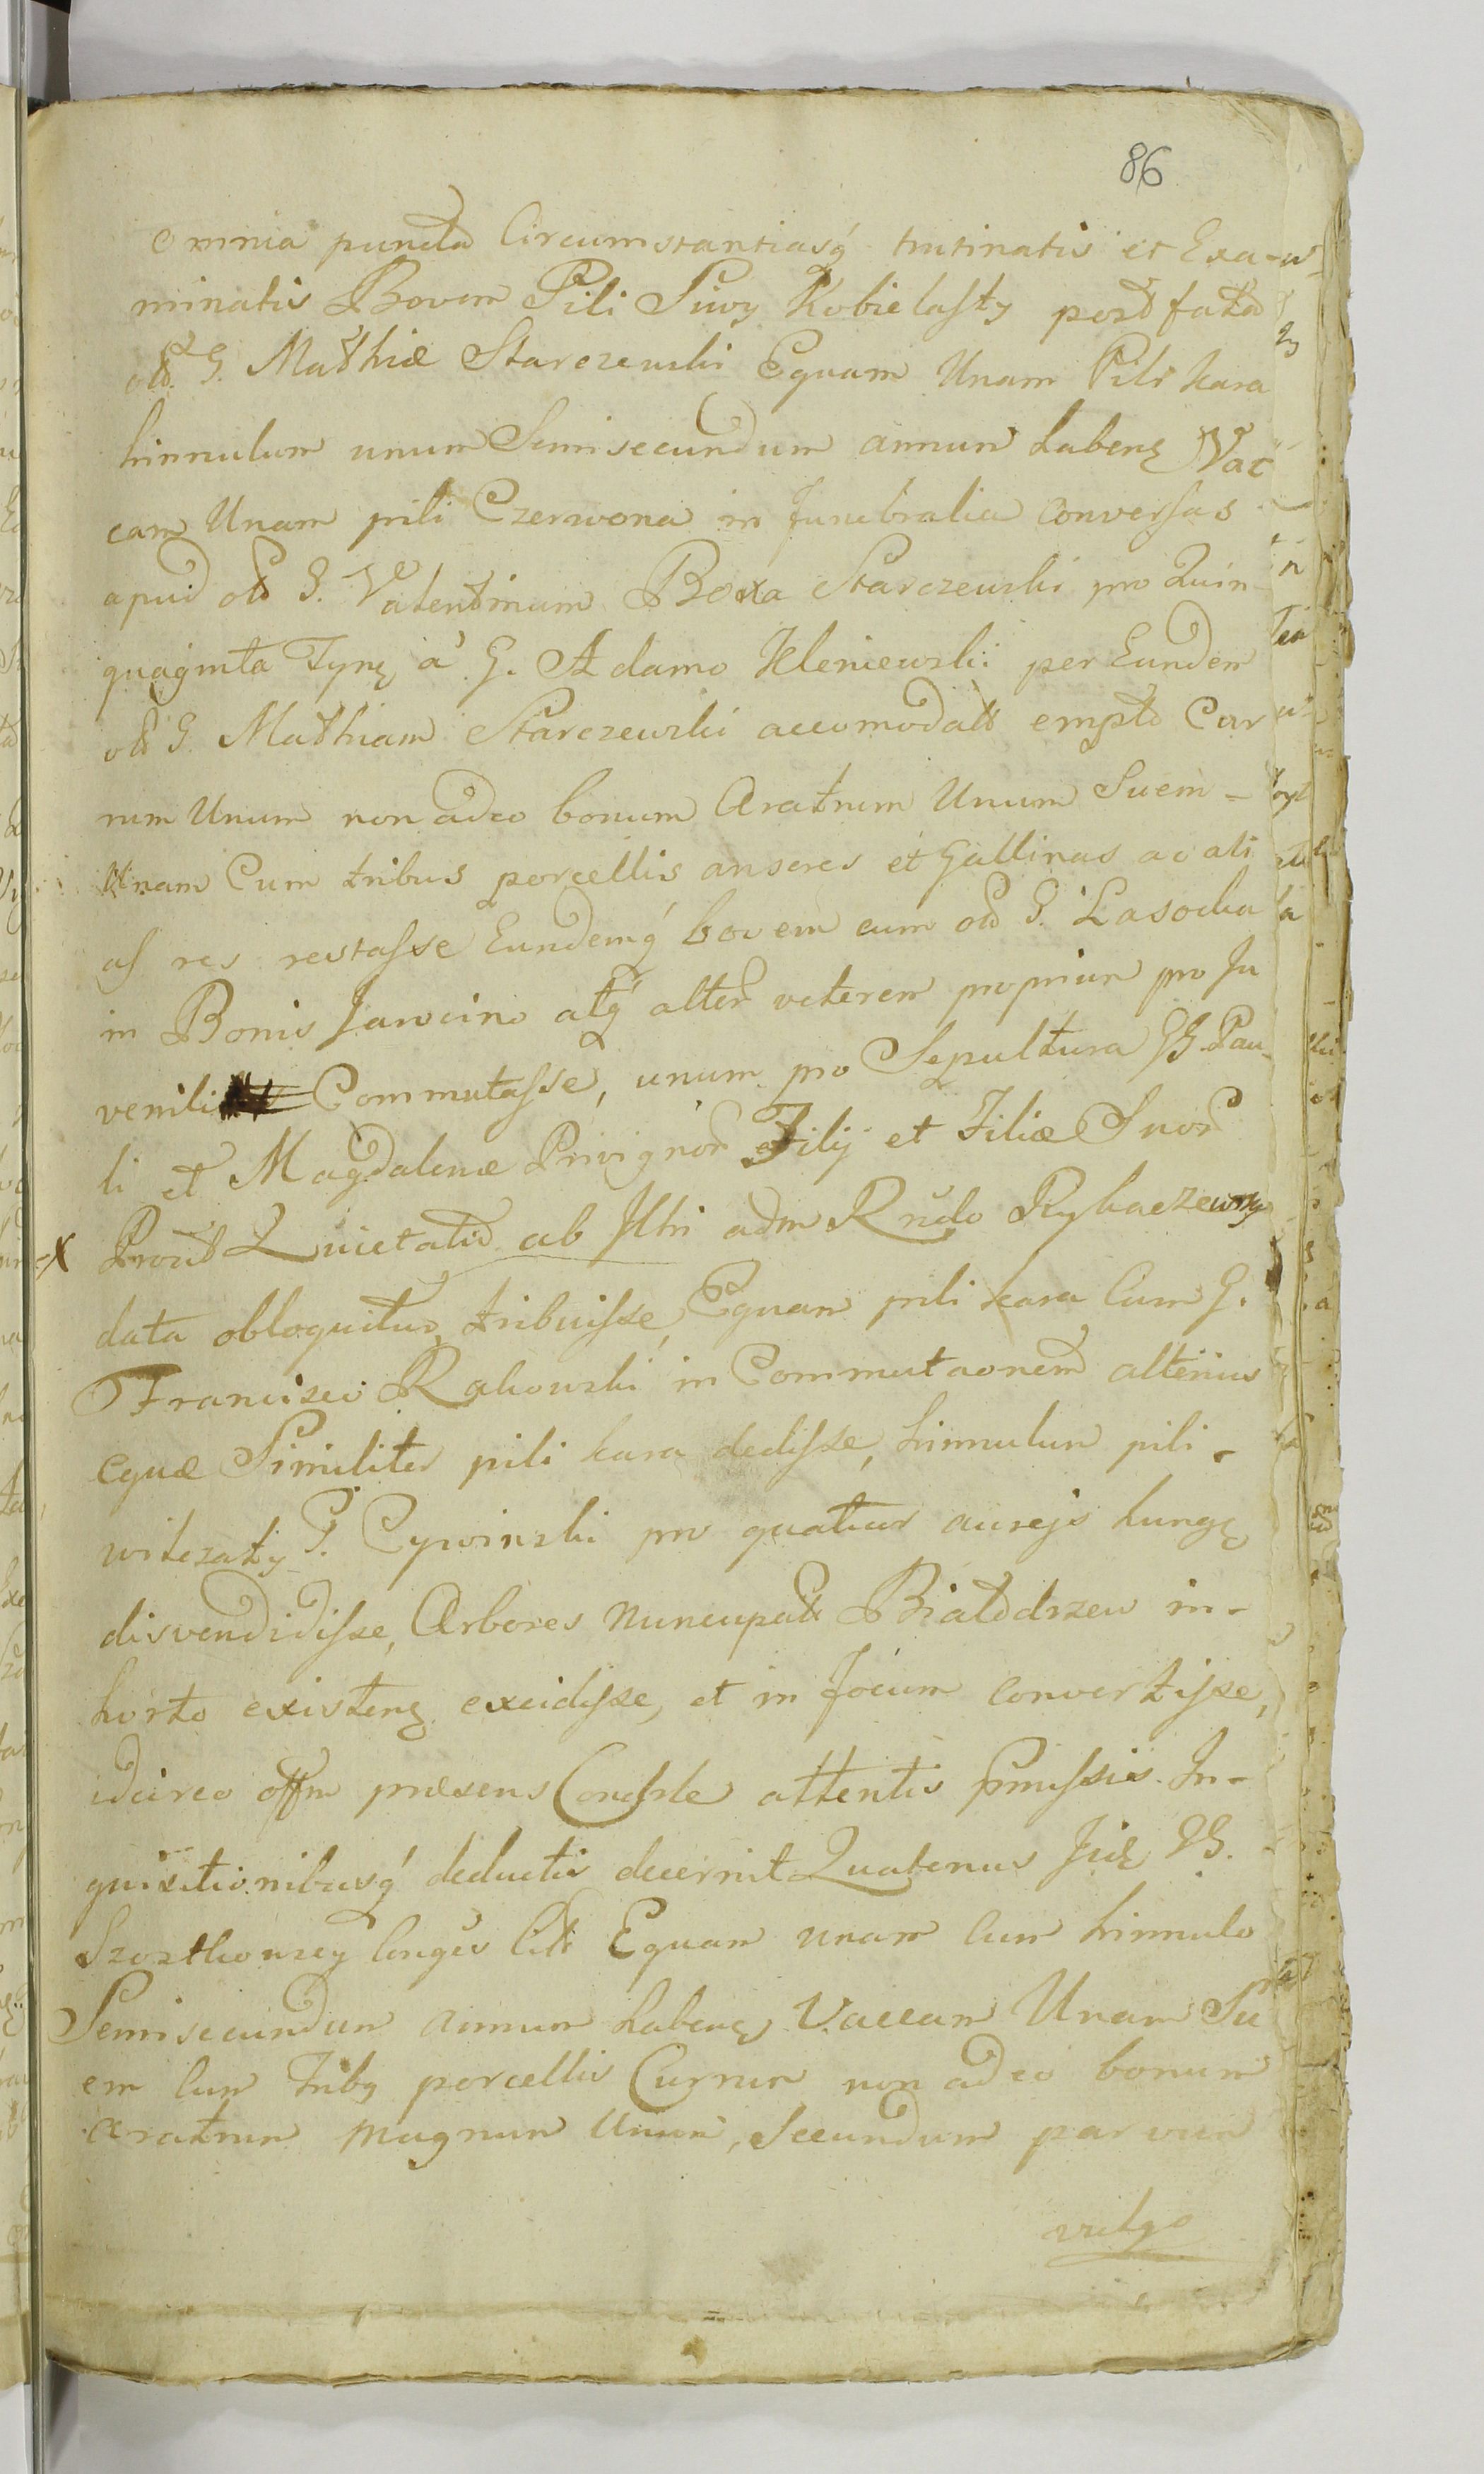 86
omnia puncta Circumstantiasq́ trutinatis et Exa-
minatis Bovem Pili Siwy Kobielasty post fata
olt. G. Mathiæ Starczewski Equam Unam Pili kara
hinnulum unum Semisecundum annum habenę Vac
cam Unam pili Czerwona in funebralia conversas
apud olt G. Valentinum Boxa Starczewski pro Quin-
quaginta Tynę à G. Adamo Kleniewski per Eundem
olt G. Mathiam Starczewski accomodatt empto Cur
rum Unum non adeo bonum Aratrum Unum Suem-
Unam Cum tribus porcellis anseres et Gallinas ac ali
as res restasse Eundemq́ bovem cum olt G. Lasocka
in Bonis Jarocino atq́ alter veterem proprium pro Ju
venili Commutasse, unum pro Sepultura GG. Pau
li et Magdalenæ Privignor Filij et Filiæ Suor
x Prout Quietatio ab Iltri adm Rndo Rybaczewsky
data obloquitur, tribuisse, Equam pili kara Cum G.
Francisco Rakowski in Commutaonem alterius
equæ Similiter pili kara dedisse, hinnulum pili -
wilczaty G. Cywinski pro quatuor aureis hungę
disvendidisse, Arbores nuncupatt Białodrzew in-
horto existenę excidisse, et in focum convertisse,
idcirco offm præsens Consule attentis pmissis In-
quisitionibusq́ deductis decernit Quatenus
longer Equam unam Cum hinnulo
Semisecundum annum habenę Vaccam Unam Su
em Cum Tribq porcellis Currum non adeo bonum
aratrum magnum Unum, Secundum parvum
vulgo